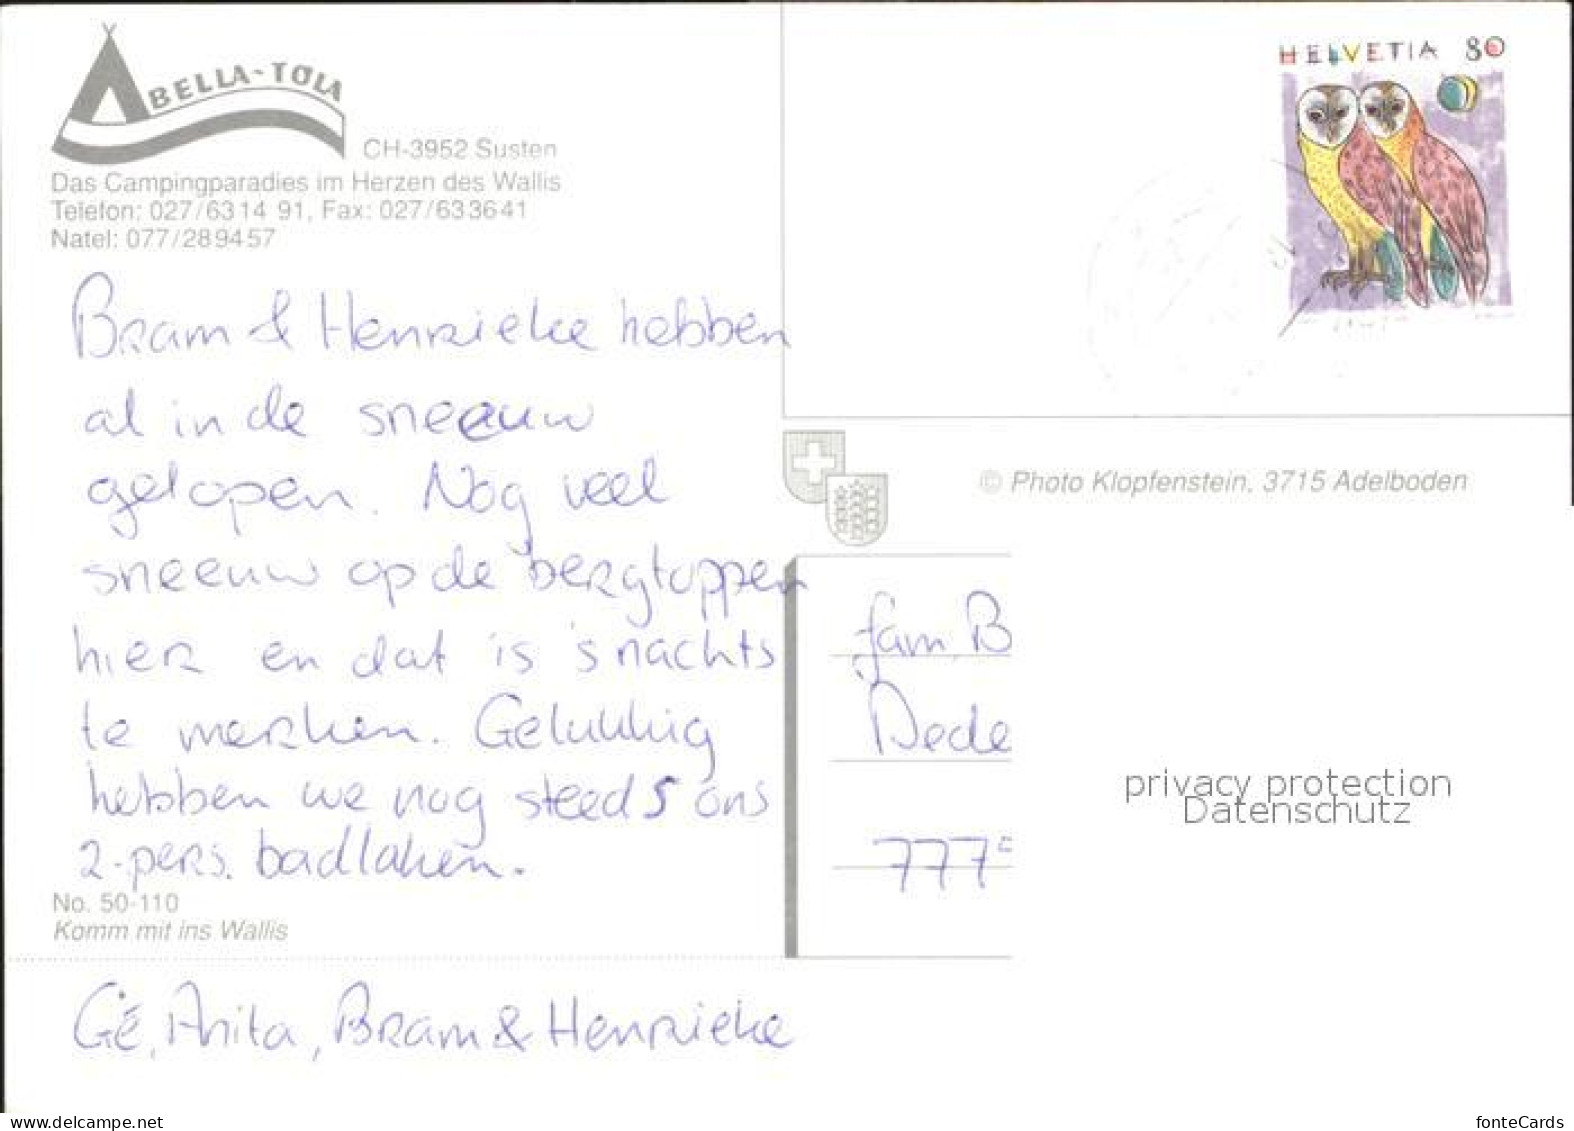 ABELLA-TOLA
CH-3952 Susten
Das Campingparadies im Herzen des Wallis
Telefon: 027/63 14 91, Fax: 027/63 36 41
Natel: 077/28 94 57
Bram & Henrieke hebben
al in de sneeuw
gelopen. Nog veel
sneeuw op de bergtoppen
hier en dat is 's nachts
te merken. Gelukkig
hebben we nog steeds ons
2-pers. badlaken.
No. 50-110
Komm mit ins Wallis
Gé, Anita, Bram & Henrieke
HELVETIA 80
© Photo Klopfenstein, 3715 Adelboden
fam. B
Dede
777
privacy protection
Datenschutz
delcampe.net
fonteCards